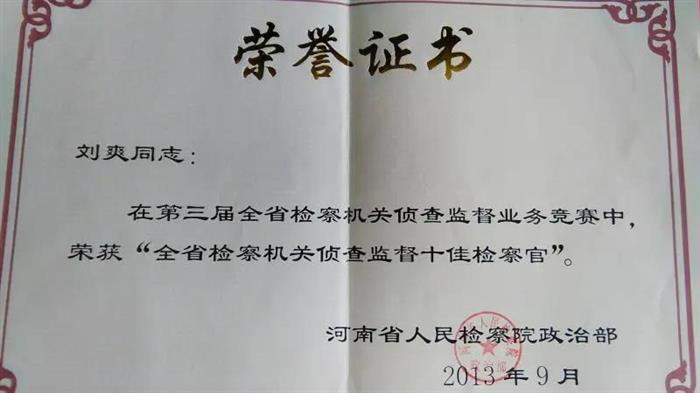 荣誉证书
刘爽同志：
在第三届全省检察机关侦查监督业务竞赛中，
荣获“全省检察机关侦查监督十佳检察官”。
河南省人民检察院政治部
2013年9月